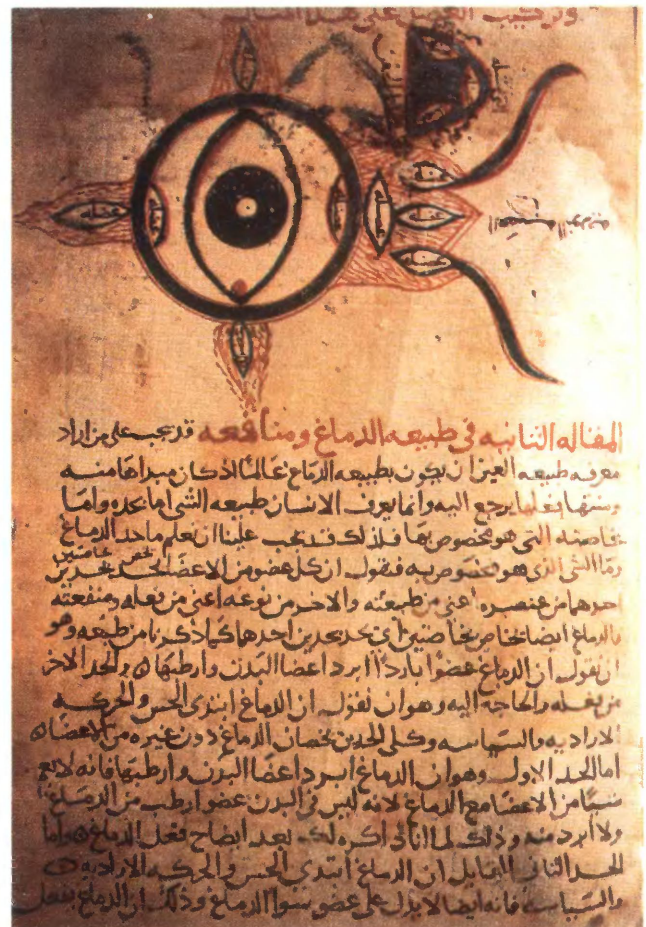 وتركيب العين على هذا المثال
عضله
عضله
عضله
عضله
عضله
عضله
عضله
عضله
عضله
المقاله الثانيه في طبيعه الدماغ ومنافعه قد يجب على من اراد
معرفه طبيعه العين ان يكون بطبيعه الدماغ عالما اذ كان مبداها منه
ومنتها فعلها يرجع اليه وانما يعرف الانسان طبيعه الشي اما بحده واما
بخاصته التي هو مخصوص بها فلذلك قد يجب علينا ان نعلم ما حد الدماغ
وما الشي الذي هو مخصوص به فنقول ان كل عضو من الاعضا يحد بحدين
احدهما من عنصره اعني من طبيعته والاخر من نوعه اعني من فعله ومنفعته
والدماغ ايضا بخاصتين يحد بحدين احدهما كما ذكرنا من طبعه وهو
ان نقول ان الدماغ عضوا باردا ابرد اعضا البدن وارطبها والحد الاخر
من فعله والحاجه اليه وهو ان نقول ان الدماغ ابتدى الحس والحركه
الاراديه والسياسه وكلى الحدين يخصان الدماغ دون غيره من الاعضا
اما الحد الاول وهو ان الدماغ ابرد اعضا البدن وارطبها فانه لا يقع
شيا من الاعضا مع الدماغ لانه ليس في البدن عضو ارطب من الدماغ
ولا ابرد منه وذلك لما انا ذاكره لك بعد ايضاح فعل الدماغ واما
الحد الثاني القايل ان الدماغ ابتدى الحس والحركه الاراديه
والسياسه فانه ايضا لا يدل على عضو سوا الدماغ وذلك ان الدماغ يفعل